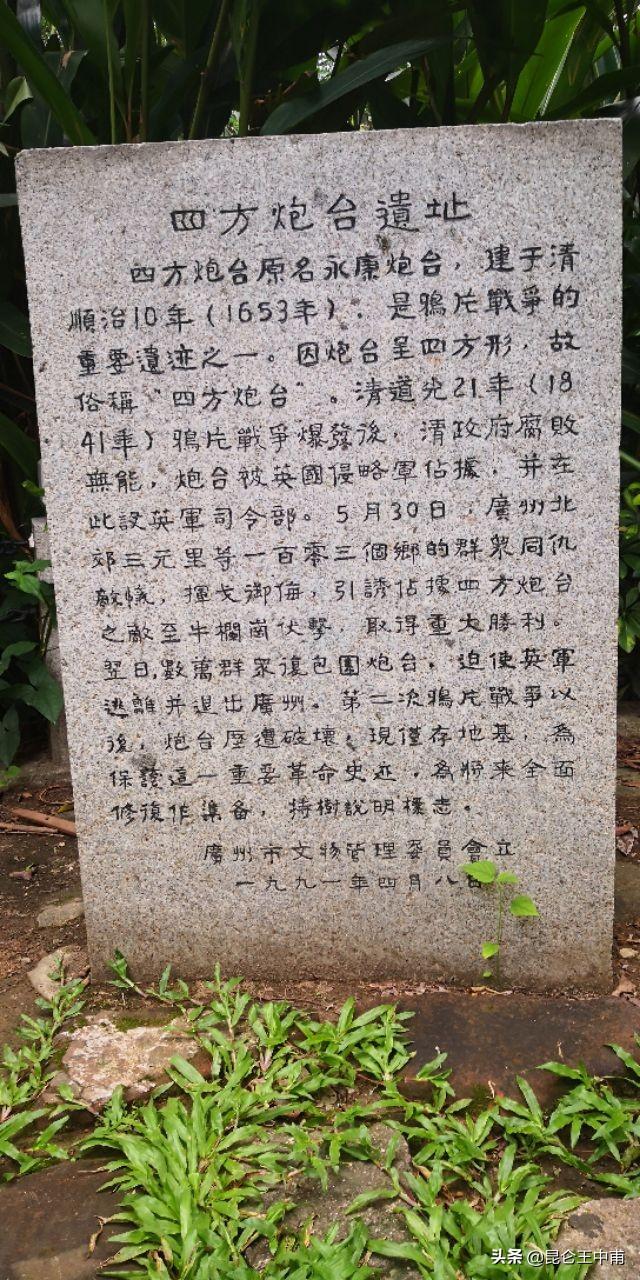 四方炮台遺址
四方炮台原名永康炮台，建于清
順治10年（1653年），是鴉片戰爭的
重要遺迹之一。因炮台呈四方形，故
俗稱“四方炮台”。清道光21年（18
41年）鴉片戰爭爆發後，清政府腐敗
無能，炮台被英國侵略軍佔據，并在
此設英軍司令部。5月30日，廣州北
郊三元里等一百零三個鄉的群衆同仇
敵愾，揮戈御侮，引誘佔據四方炮台
之敵至牛欄崗伏擊，取得重大勝利。
翌日，數萬群衆復包圍炮台，迫使英軍
逃離并退出廣州。第二次鴉片戰爭以
後，炮台歷遭破壞，現僅存地基，為
保護這一重要革命史迹，為將来全面
修復作準备，特樹說明標志。
廣州市文物管理委員會立
一九九一年四月八日
头条 @昆仑王中甫